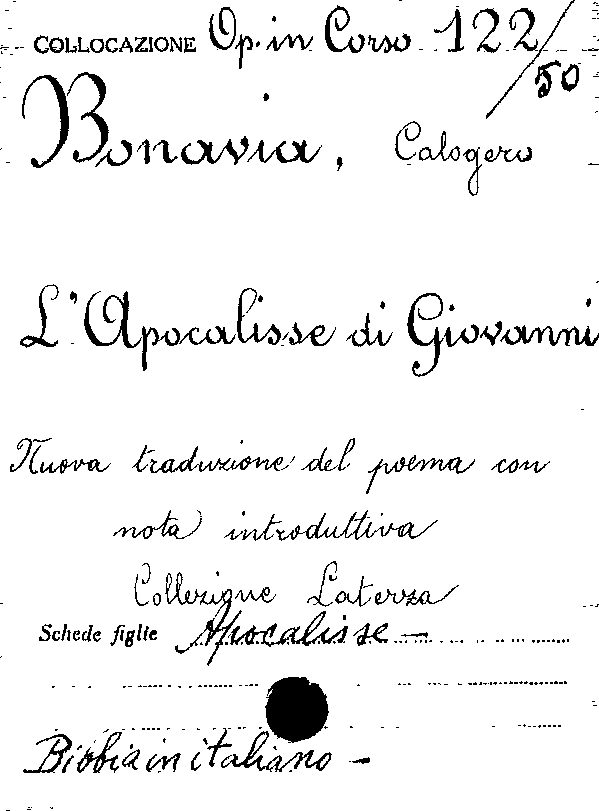 COLLOCAZIONE Op. in Corso 122/50
Bonavia, Calogero
L'Apocalisse di Giovanni
Nuova traduzione del poema con
nota introduttiva
Collezione Laterza
Schede figlie Apocalisse -
Bibbia in italiano -